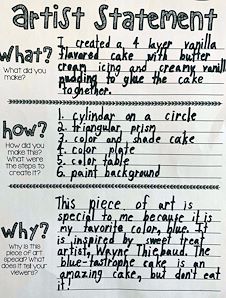 artist Statement
What?
What did you make?
I created a 4 layer vanilla
flavored cake with butter
cream icing and creamy vanilla
pudding to glue the cake
together.
how?
How did you make this? What were the steps to create it?
1. cylindar on a circle
2. triangular prism
3. color and shade cake
4. color plate
5. color table
6. paint background
Why?
Why is this piece of art special? What does it tell your viewers?
This piece of art is
special to me because it is
my favorite color, blue. It
is inspired by sweet treat
artist, Wayne Thiebaud. The
blue-tastrophe cake is an
amazing cake, but don't eat
it!